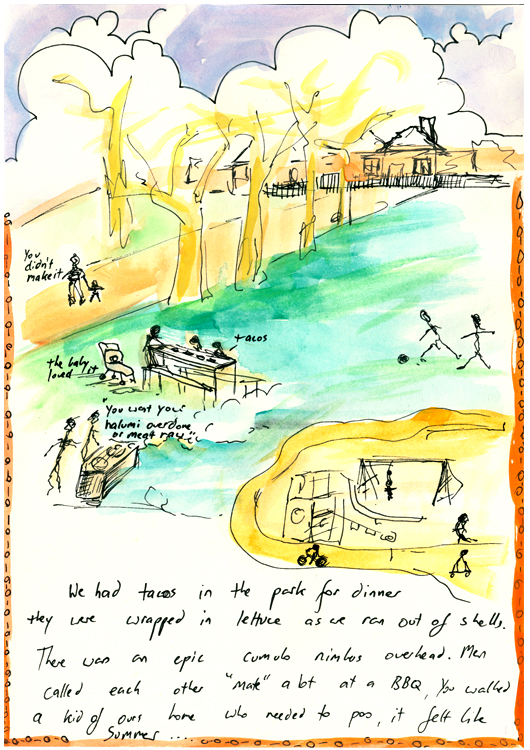 You
didn't
make it
tacos
the baby
loved it
"You want your
halumi overdone
or meat raw"
We had tacos in the park for dinner
they were wrapped in lettuce as we ran out of shells.
There was an epic cumulo nimbus overhead. Men
called each other "Mate" a lot at a BBQ, You walked
a kid of ours home who needed to poo, it felt like
Summer ....